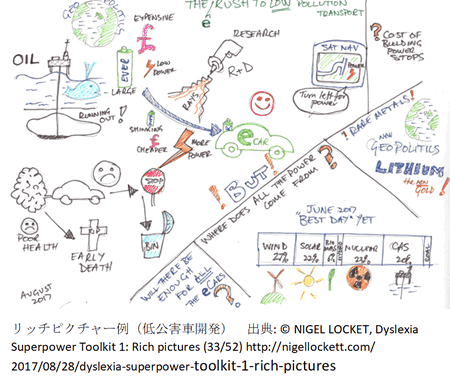 THE RUSH TO LOW POLLUTION
e
TRANSPORT
GEOPOLITICS
OIL
EXPENSIVE
£
EVER
LARGE
LOW
POWER
RESEARCH
R+D
RAYS
SAT NAV
POWER
Turn left for
power
? COST OF
BUILDING
POWER
STOPS
RUNNING
OUT!
SHRINKING
CHEAPER
£
MORE
POWER
e CAR
STOP
BIN
POOR
HEALTH
EARLY
DEATH
AUGUST
2017
! BUT !
WHERE DOES ALL THE POWER
COME FROM ?
! RARE METALS !
NEW
GEOPOLITICS
LITHIUM
the new
GOLD!
WILL THERE BE
ENOUGH
FOR ALL
THE
eCARS
?
JUNE 2017
"BEST DAY" YET
WIND
27%
SOLAR
22%
NUCLEAR
23%
GAS
20%
COAL
リッチピクチャー例（低公害車開発） 出典: © NIGEL LOCKET, Dyslexia
Superpower Toolkit 1: Rich pictures (33/52) http://nigellockett.com/
2017/08/28/dyslexia-superpower-toolkit-1-rich-pictures